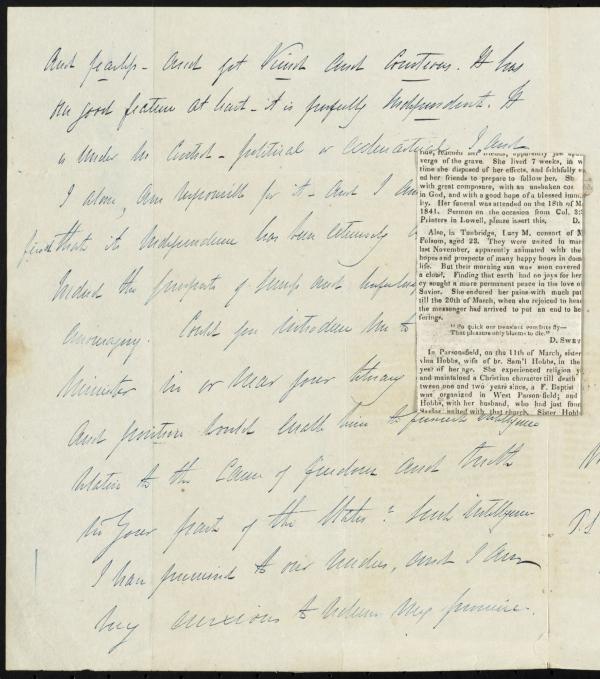 and fearless - and yet Kind and Courteous. It has
One good feature at least - it is perfectly independent. It
is Under No Control - political or and
I alone, am responsible for it and I
find that its Independence has been extremely
Indeed the prospects of and
encouraging. Could you introduce me to
Minister in or near your
And position would enable him to furnish intelligence
relative to the Cause of freedom and truth
in Your part of the States? Such intelligence
I have promised to our readers, and I am
very anxious to redeem my promise.
verge of the grave. She lived 7 weeks, in w
time she disposed of her effects, and faithfully
ed her friends to prepare to follow her. Sh
with great composure, with an unshaken con
in God, and with a good hope of a blessed immo
ity. Her funeral was attended on the 18th of M
1841. Sermon on the occasion from Col. 3:
Printers in Lowell, please insert this. D.
Also, in Tunbridge, Lucy M. consort of N
Folsom, aged 22. They were united in mar
last November, apparently animated with the
hopes and prospects of many happy hours in dom
life. But their morning sun was soon covered
a cloud. Finding that earth had no joys for her
ey sought a more permanent peace in the love of
Savior. She endured her pains with much pat
till the 20th of March, when she rejoiced to hear
the messenger had arrived to put an end to he
ferings.
"So quick our pleasant comforts fly—
That pleasure only blooms to die."
D. SWET
In Parsonsfield, on the 11th of March, sister
vina Hobbs, wife of br. Sam'l Hobbs, in the
year of her age. She experienced religion
and maintained a Christian character till death
tween one and two years since, a F. Baptist
was organized in West Parsonsfield; and
Hobbs, with her husband, who had just four
united with that church. Sister Hobb